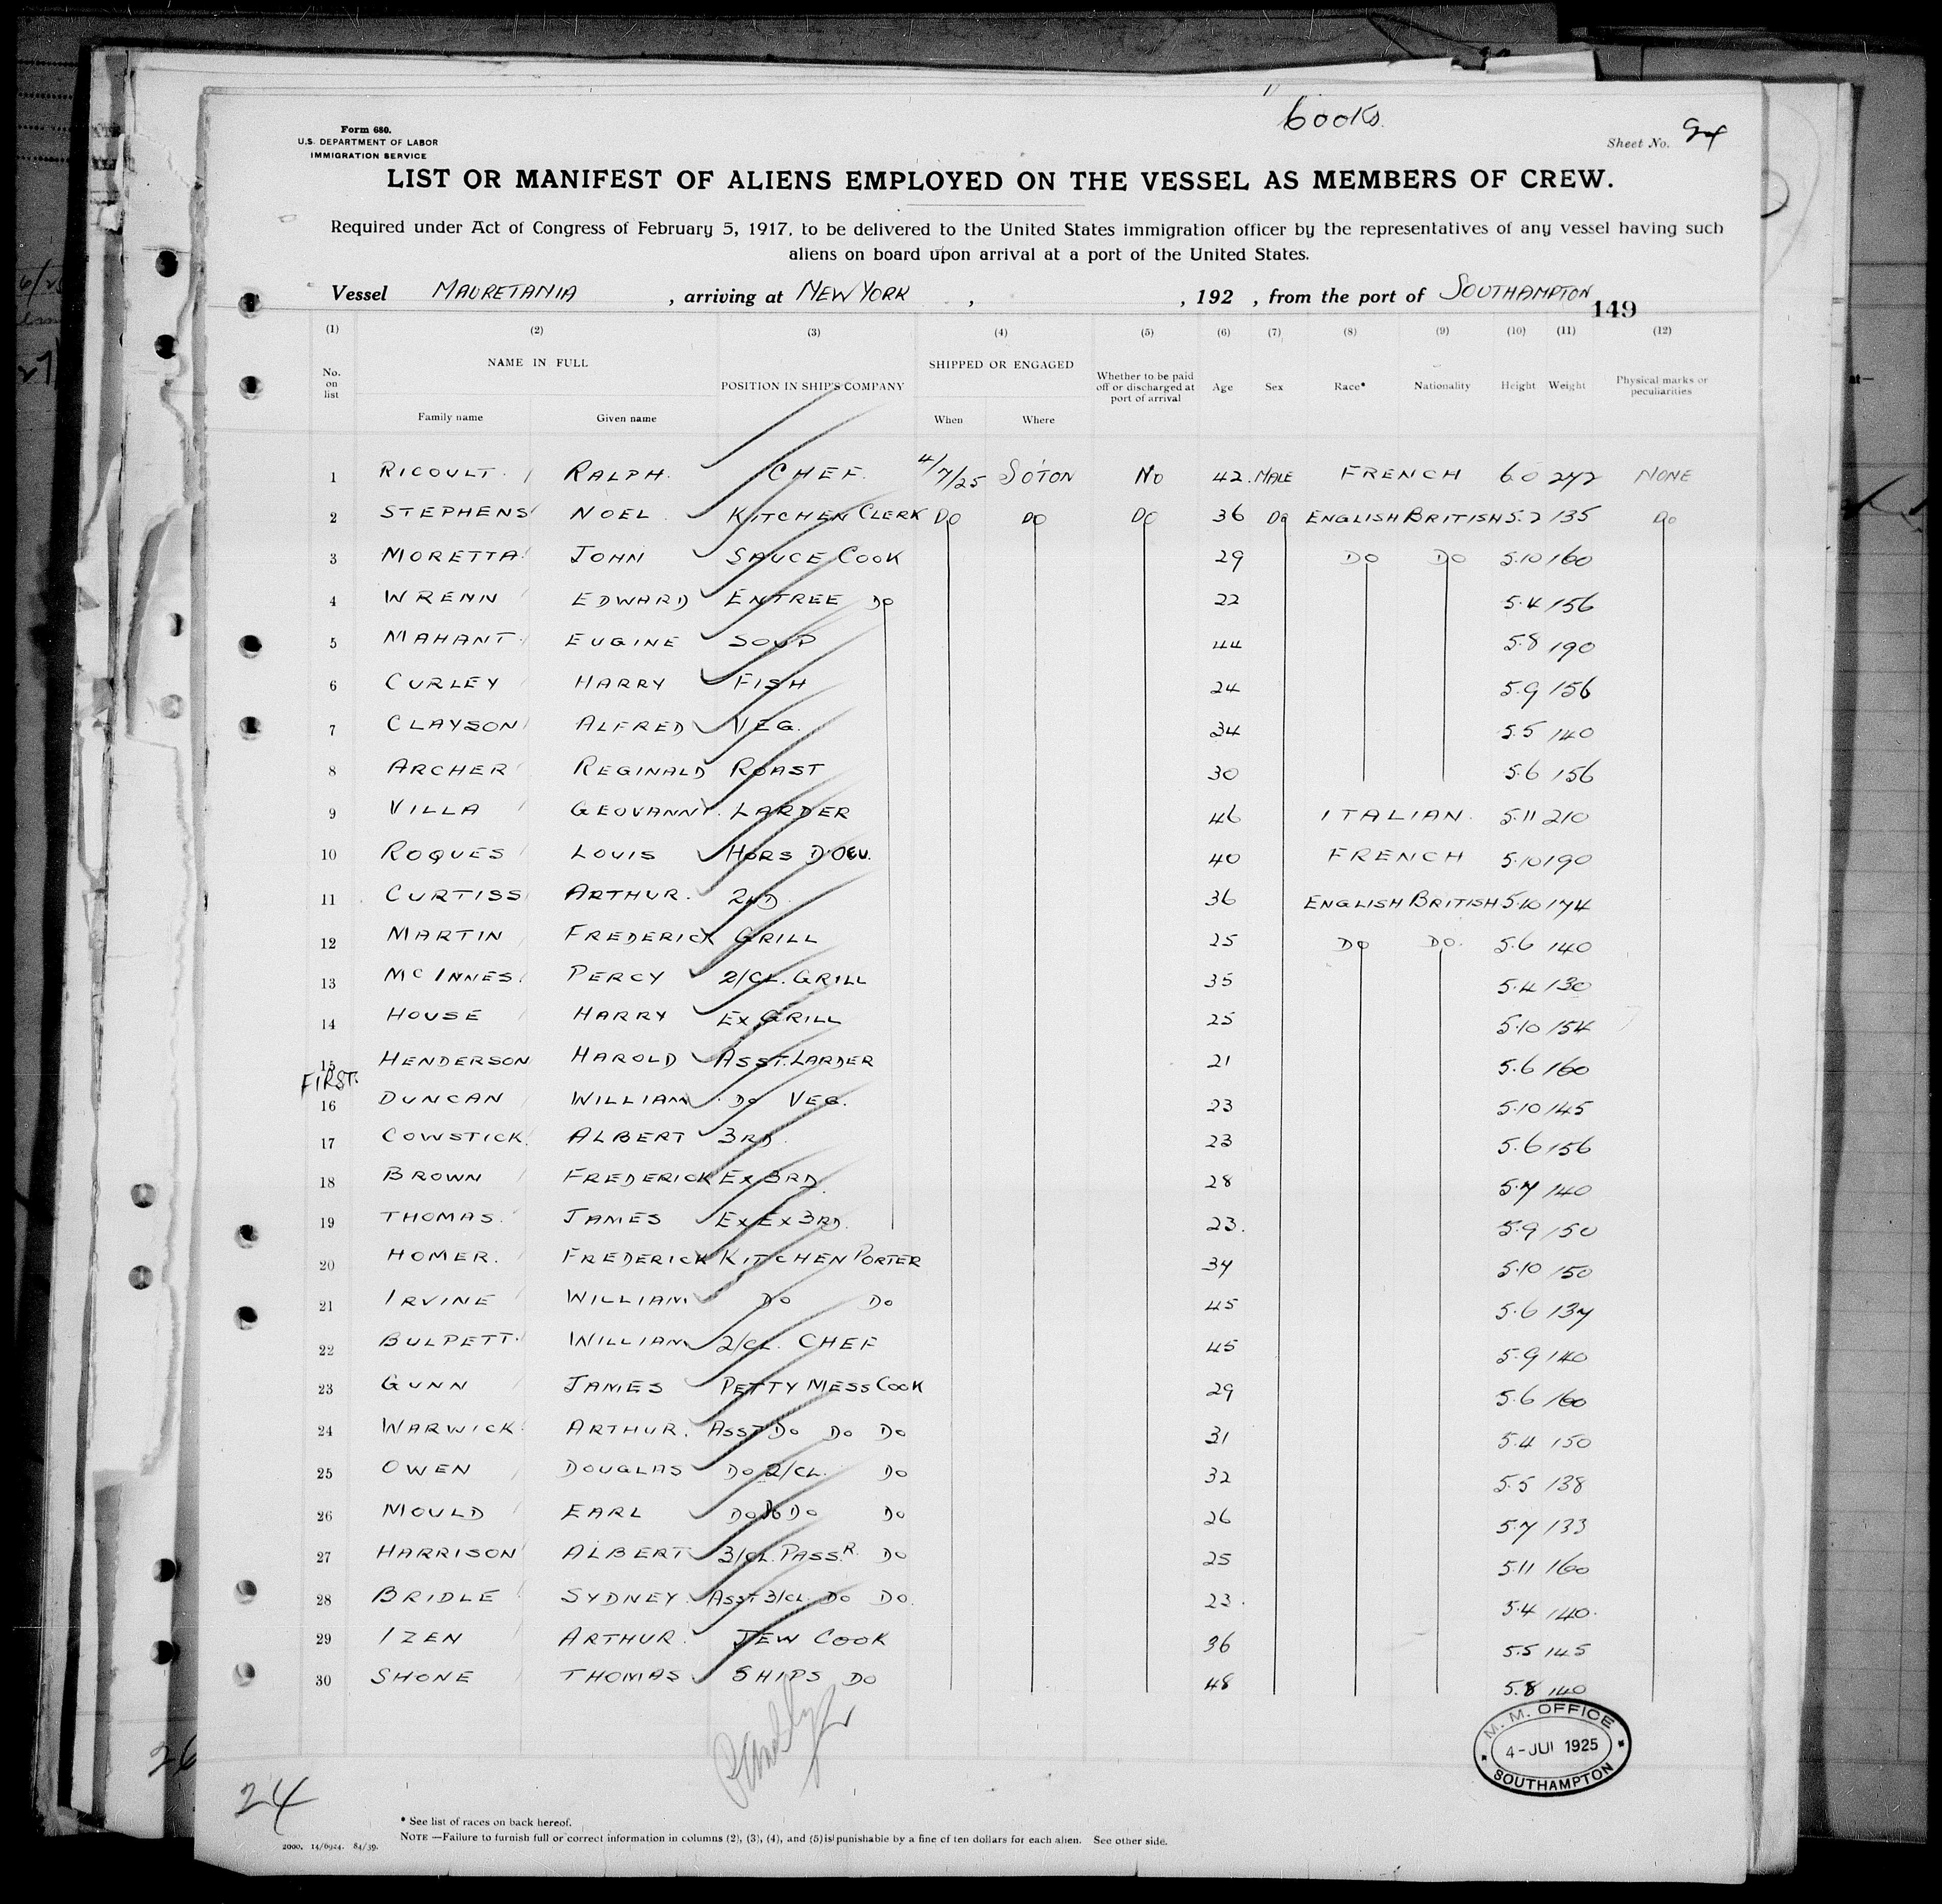 Cooks.
Form 680.
U.S. DEPARTMENT OF LABOR
IMMIGRATION SERVICE
Sheet No.
LIST OR MANIFEST OF ALIENS EMPLOYED ON THE VESSEL AS MEMBERS OF CREW.
Required under Act of Congress of February 5, 1917, to be delivered to the United States immigration officer by the representatives of any vessel having such
aliens on board upon arrival at a port of the United States.
Vessel MAURETANIA , arriving at NEW YORK , , 192 , from the port of SOUTHAMPTON
149
(1) (2) (3) (4) (5) (6) (7) (8) (9) (10) (11) (12)
No. on list NAME IN FULL POSITION IN SHIP'S COMPANY SHIPPED OR ENGAGED Whether to be paid off or discharged at port of arrival Age Sex Race* Nationality Height Weight Physical marks or peculiarities
Family name Given name When Where
1 RICOULT RALPH. CHEF. 4/7/25 SOTON NO 42. MALE FRENCH 6.0 242 NONE
2 STEPHENS NOEL KITCHEN CLERK DO DO DO 36 DO ENGLISH BRITISH 5.7 135 DO
3 MORETTA JOHN SAUCE COOK 29 DO DO 5.10 160
4 WRENN EDWARD ENTREE DO 22 5.4 156
5 MAHANT EUGINE SOUP 44 5.8 190
6 CURLEY HARRY FISH 24 5.9 156
7 CLAYSON ALFRED VEG. 34 5.5 140
8 ARCHER REGINALD ROAST 30 5.6 156
9 VILLA GEOVANNY. LARDER 46 ITALIAN. 5.11 210
10 ROQUES LOUIS HORS D'OEU. 40 FRENCH 5.10 190
11 CURTISS ARTHUR. 2ND 36 ENGLISH BRITISH 5.10 174
12 MARTIN FREDERICK GRILL 25 DO DO. 5.6 140
13 MCINNES. PERCY 2/CL. GRILL 35 5.4 130
14 HOUSE HARRY EX GRILL 25 5.10 154
15 HENDERSON HAROLD ASST. LARDER 21 5.6 160
FIRST.
16 DUNCAN WILLIAM DO VEG. 23 5.10 145
17 COWSTICK. ALBERT 3RD. 23 5.6 156
18 BROWN FREDERICK EX 3RD. 28 5.7 140
19 THOMAS. JAMES EX EX 3RD. 23. 5.9 150
20 HOMER. FREDERICK KITCHEN PORTER 34 5.10 150
21 IRVINE WILLIAM DO DO 45 5.6 137
22 BULPETT. WILLIAM 2/CL. CHEF 45 5.9 140
23 GUNN JAMES PETTY MESS COOK 29 5.6 160
24 WARWICK ARTHUR. ASST DO DO DO 31 5.4 150
25 OWEN DOUGLAS DO 2/CL. DO 32 5.5 138
26 MOULD EARL DO DO DO DO 26 5.7 133
27 HARRISON ALBERT 3/CL. PASSR. DO 25 5.11 160
28 BRIDLE SYDNEY. ASST 3/CL. DO DO. 23. 5.4 140.
29 IZEN ARTHUR. JEW COOK 36 5.5 145
30 SHONE THOMAS SHIPS DO 48 5.8 140
M. M. OFFICE
4-JUL 1925
SOUTHAMPTON
24
* See list of races on back hereof.
NOTE —Failure to furnish full or correct information in columns (2), (3), (4), and (5) is punishable by a fine of ten dollars for each alien. See other side.
2000. 14/6924. 84/39.
26